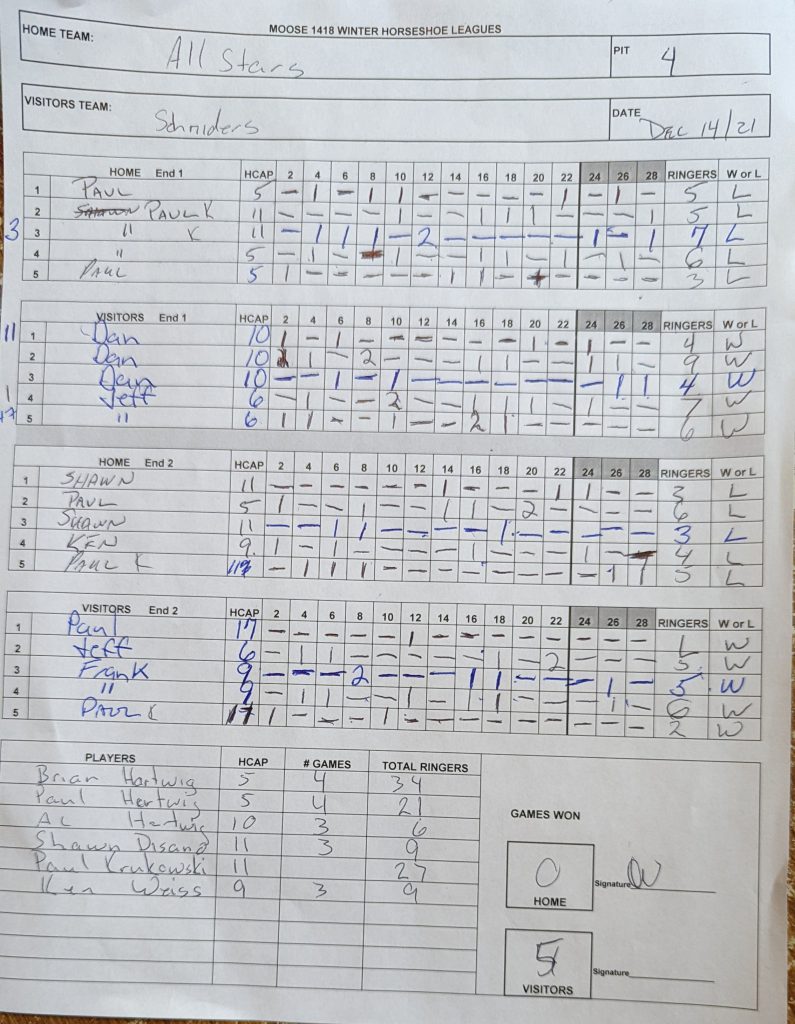 MOOSE 1418 WINTER HORSESHOE LEAGUES
HOME TEAM: All Stars PIT 4
VISITORS TEAM: Schniders DATE DEC 14/21
HOME End 1 HCAP 2 4 6 8 10 12 14 16 18 20 22 24 26 28 RINGERS W or L
1 PAUL 5 – 1 – 1 1 – – – – – 1 – 1 – 5 L
2 PAUL K 11 – – – – 1 – – 1 1 1 – – – 1 5 L
3 3 " K 11 – 1 1 1 – 2 – – – – – 1 – 1 7 L
4 " 5 6 L
5 PAUL 5 1 – – – – – 1 1 – – – – – 3 L
VISITORS End 1 HCAP 2 4 6 8 10 12 14 16 18 20 22 24 26 28 RINGERS W or L
11 1 Dan 10 1 – 1 – – – – – – 1 – 1 – – 4 W
2 Dan 10 1 – 2 – – – 1 1 – – 1 1 – 9 W
3 Dan 10 – – 1 – 1 – – – – – – – 1 1 4 W
1 4 Jeff 6 – 1 – – 2 – – 1 1 1 – 1 – – 7 W
5 " 6 1 1 – – 1 – – 2 1 – – – – – 6 W
HOME End 2 HCAP 2 4 6 8 10 12 14 16 18 20 22 24 26 28 RINGERS W or L
1 SHAWN 11 – – – – – – 1 – – – 1 1 – – 3 L
2 PAUL 5 1 – – 1 – – 1 1 – 2 – – – – 6 L
3 SHAWN 11 – – 1 1 – – – – 1 – – – – – 3 L
4 KEN 9 1 – 1 – – – – 1 – – – 1 – – 4 L
5 PAUL K – 1 1 1 – – – – – – – – 1 1 5 L
VISITORS End 2 HCAP 2 4 6 8 10 12 14 16 18 20 22 24 26 28 RINGERS W or L
1 Paul 17 – – – – – 1 – – – – – – – – 1 W
2 Jeff 6 – 1 1 – – – – – 1 – 2 – – – 5 W
3 Frank 9 – – – 2 – – – 1 1 – – – 1 – 5 W
4 " 9 – 1 1 – – 1 – – 1 – – – 1 – 6 W
5 PAUL K 17 1 – – – 1 – – – – – – – – – 2 W
PLAYERS HCAP # GAMES TOTAL RINGERS
Brian Hartwig 5 4 34
Paul Hertwig 5 4 21
AL Hertwig 10 3 6
Shawn Disano 11 3 9
Paul Krukowski 11 27
Ken Weiss 9 3 9
GAMES WON
0 Signature
HOME
5 Signature
VISITORS